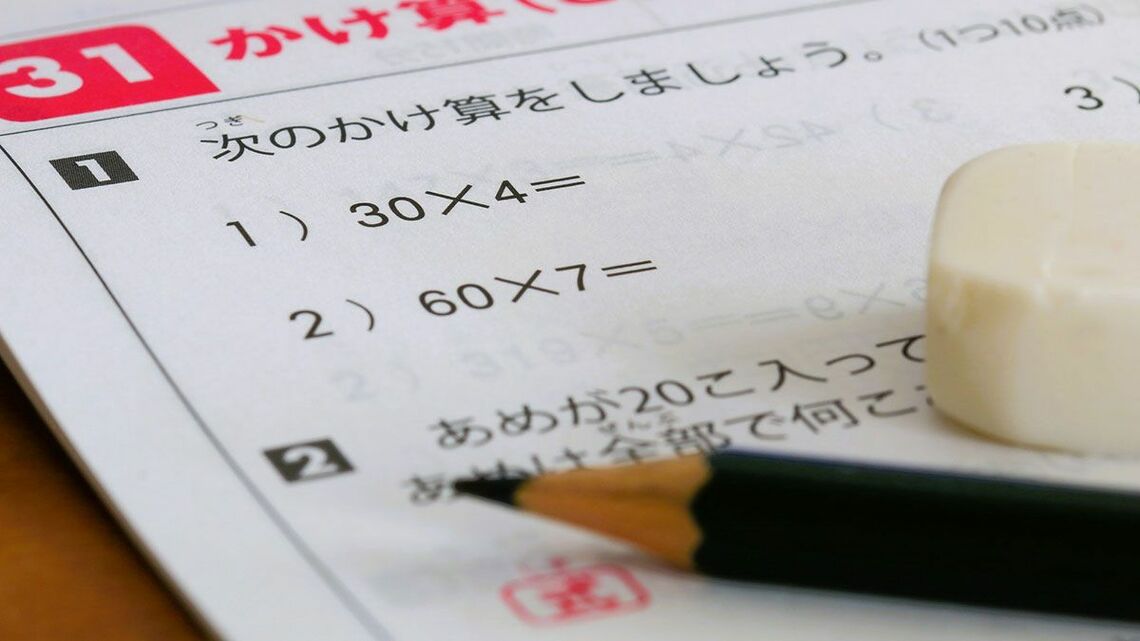 31 かけ算
1 次のかけ算をしましょう。(1つ10点)
つぎ
1) 30×4=
3)
2) 60×7=
2 あめが20こ入って
ぜんぶ
あめは全部で何こ
式